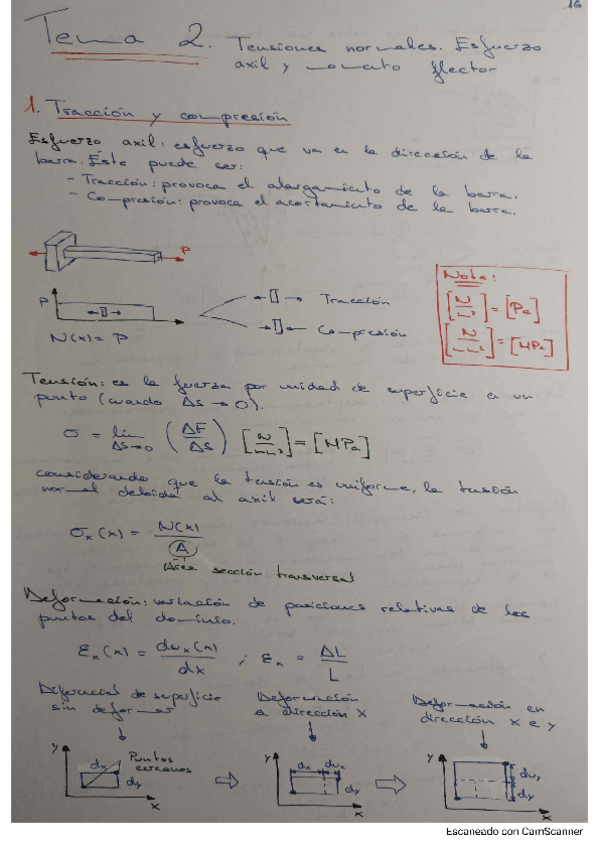 16
Tema 2. Tensiones normales. Esfuerzo
axil y momento flector
1. Tracción y compresión
Esfuerzo axil: esfuerzo que va en la dirección de la
barra. Éste puede ser:
- Tracción: provoca el alargamiento de la barra.
- Compresión: provoca el acortamiento de la barra.
P
Nota:
[N/m²] = [Pa]
[N/mm²] = [MPa]
P
Tracción
Compresión
N(x) = P
Tensión: es la fuerza por unidad de superficie en un
punto (cuando ΔS → 0).
σ = lim ΔS→0 (ΔF/ΔS) [N/mm²] = [MPa]
considerando que la tensión es uniforme, la tensión
normal debida al axil será:
σx(x) = N(x)/A
Área sección transversal
Deformación: variación de posiciones relativas de los
puntos del dominio.
εx(x) = dux(x)/dx ; εx = ΔL/L
Diferencial de superficie
sin deformar
Deformación
a dirección X
Deformación en
dirección X e y
y dx Puntos cercanos dy x
y dx dux dy x
y duy dy x
Escaneado con CamScanner